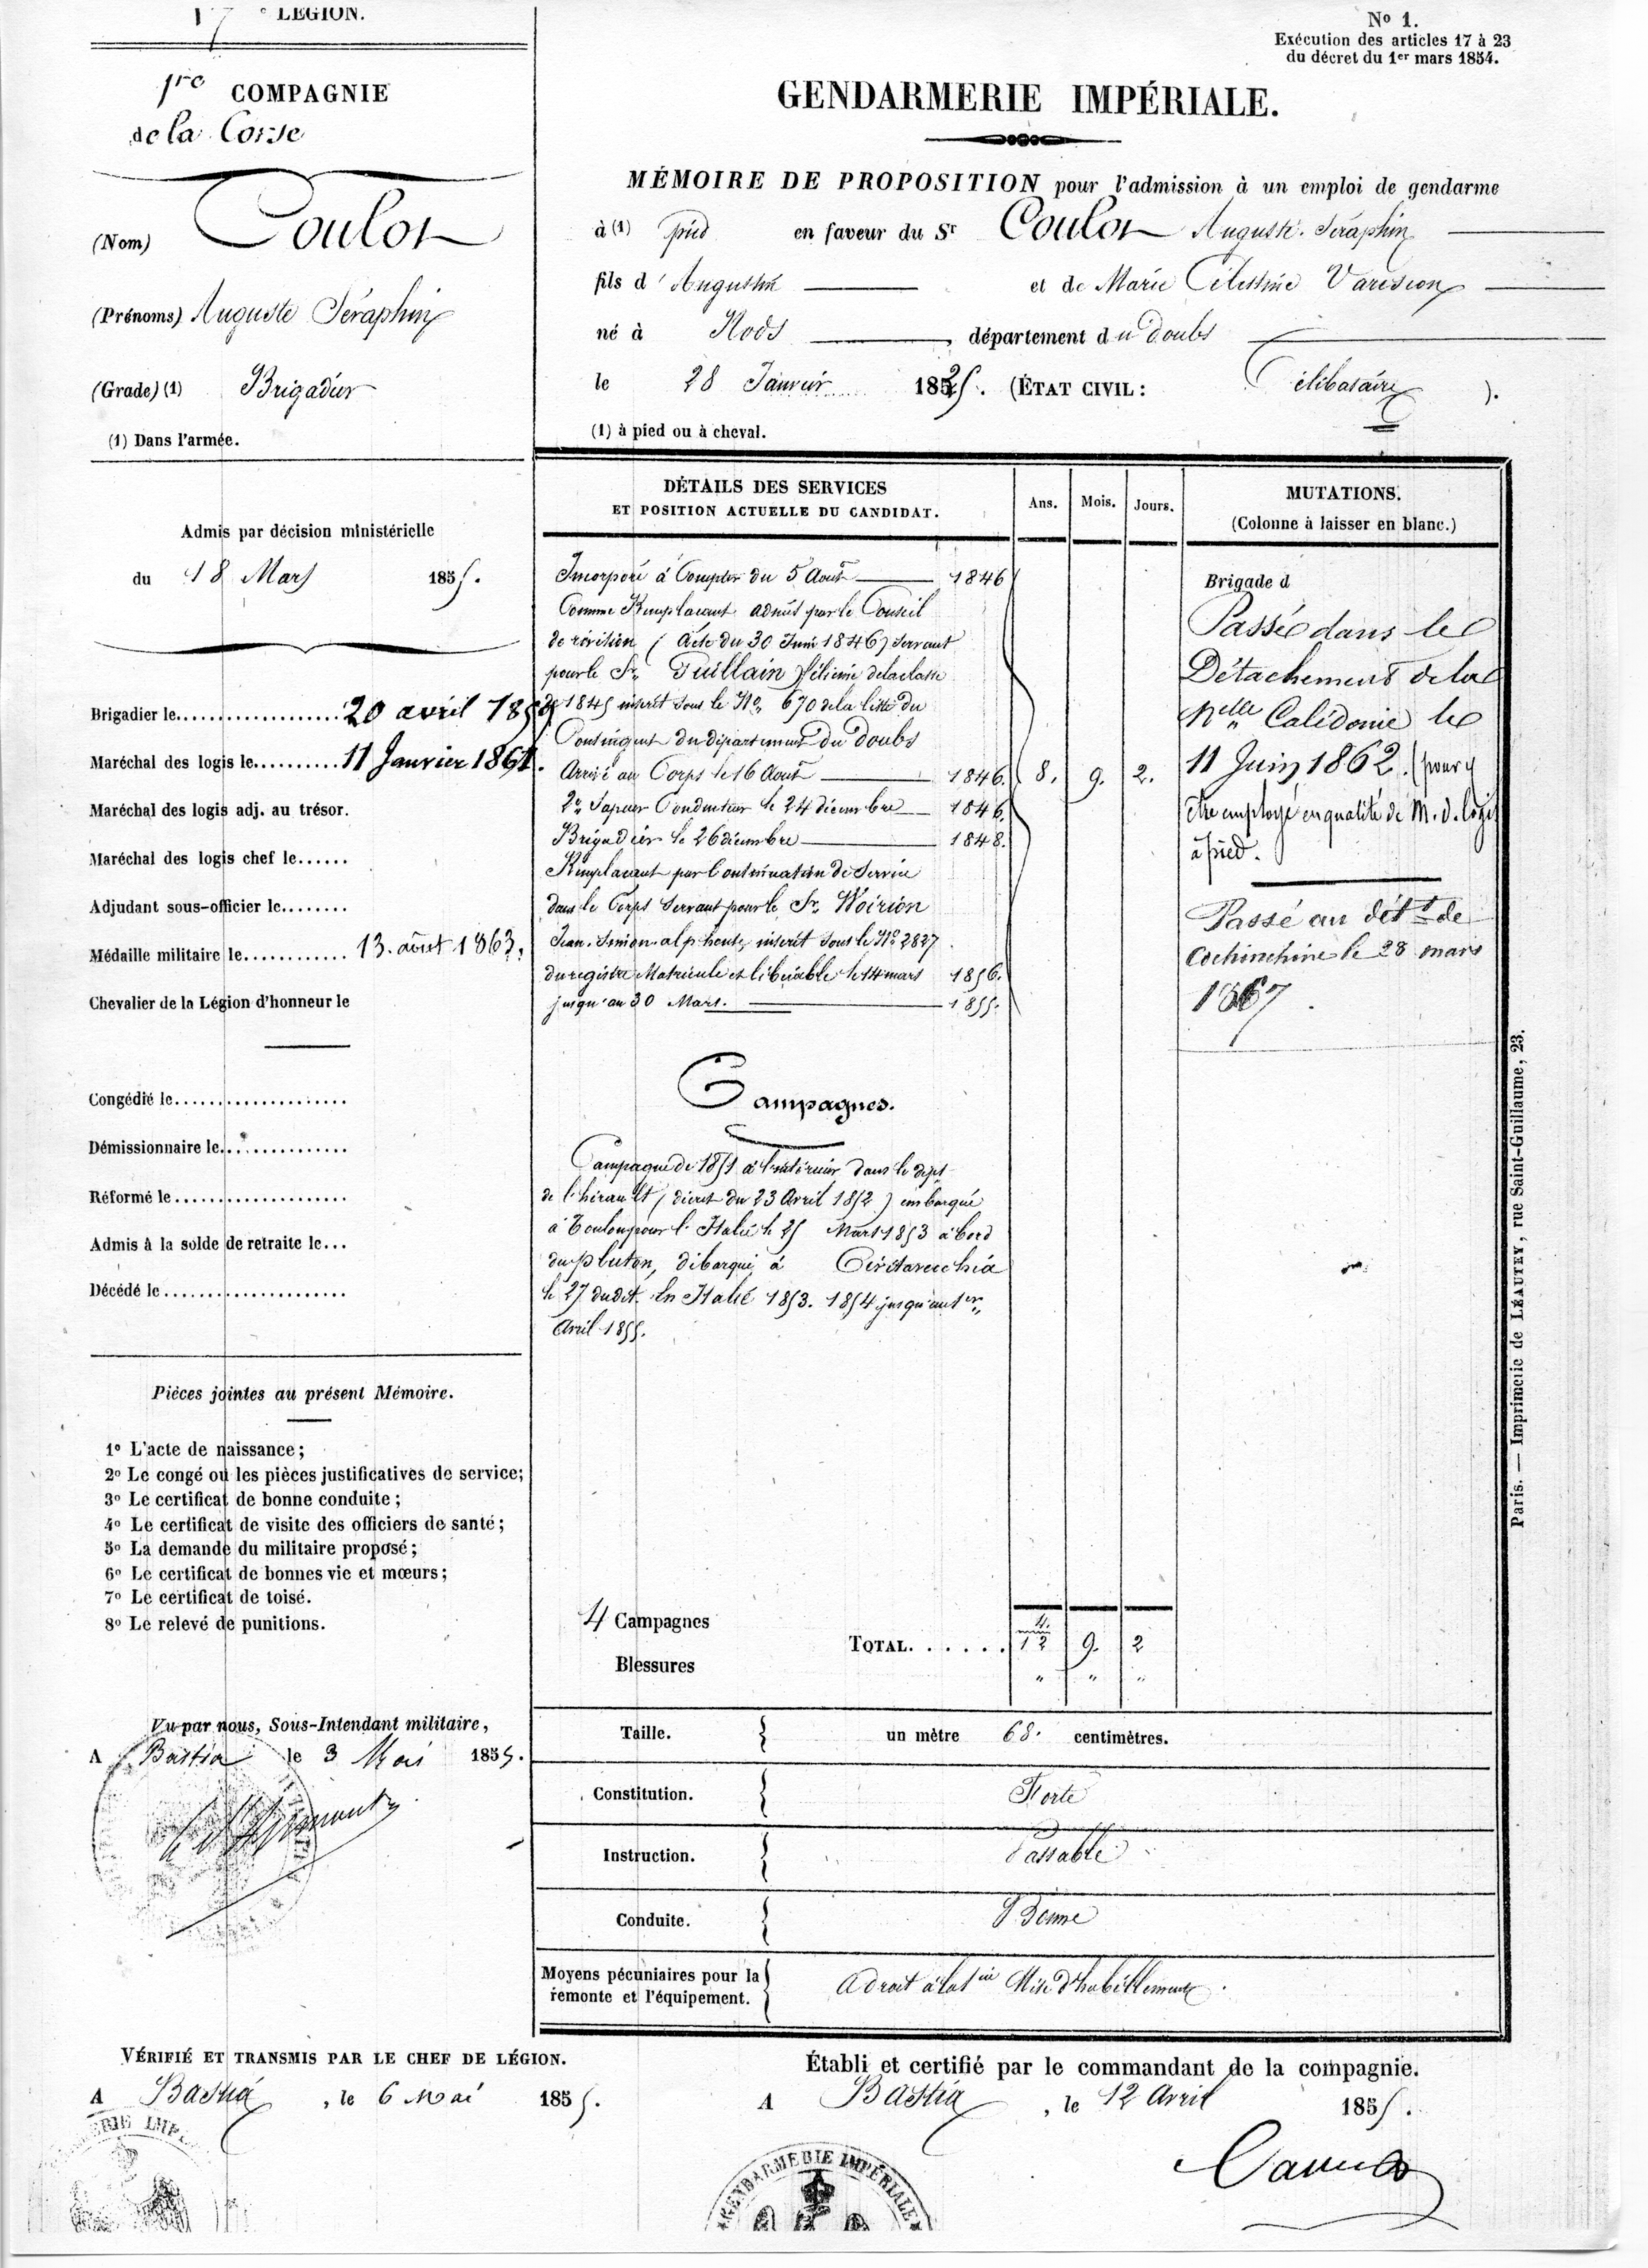 17e LÉGION.
1re COMPAGNIE
de la Corse
(Nom) Coulon
(Prénoms) Auguste Séraphin
(Grade) (1) Brigadier
(1) Dans l'armée.
Admis par décision ministérielle
du 18 Mars 1855.
Brigadier le 20 avril 185
Maréchal des logis le 11 Janvier 1861.
Maréchal des logis adj. au trésor.
Maréchal des logis chef le
Adjudant sous-officier le
Médaille militaire le 13. août 1863.
Chevalier de la Légion d'honneur le
Congédié le
Démissionnaire le
Réformé le
Admis à la solde de retraite le
Décédé le
Pièces jointes au présent Mémoire.
1o L'acte de naissance;
2o Le congé ou les pièces justificatives de service;
3o Le certificat de bonne conduite;
4o Le certificat de visite des officiers de santé;
5o La demande du militaire proposé;
6o Le certificat de bonnes vie et mœurs;
7o Le certificat de toisé.
8o Le relevé de punitions.
Vu par nous, Sous-Intendant militaire,
A Bastia le 3 Mai 1855.
VÉRIFIÉ ET TRANSMIS PAR LE CHEF DE LÉGION.
A Bastia, le 6 Mai 1855.
No 1.
Exécution des articles 17 à 23
du décret du 1er mars 1854.
GENDARMERIE IMPÉRIALE.
MÉMOIRE DE PROPOSITION pour l'admission à un emploi de gendarme
à (1) pied en faveur du Sr Coulon Auguste Séraphin
fils d'Augustin et de Marie Célestine
né à Nods, département du Doubs
le 28 Janvier 1825. (ÉTAT CIVIL: Célibataire).
(1) à pied ou à cheval.
DÉTAILS DES SERVICES
ET POSITION ACTUELLE DU CANDIDAT.
Ans. Mois. Jours.
MUTATIONS.
(Colonne à laisser en blanc.)
Incorporé à Compter du 5 Août 1846
Comme Remplacant admis par le Conseil
de révision (Acte du 30 Juin 1846) servant
pour le Sr Guillain de la classe
de 1845 inscrit sous le No 670 de la liste du
Contingent du département du Doubs
Arrivé au Corps le 16 Août 1846. 8. 9. 2.
2e Sapeur Conducteur le 24 décembre 1846.
Brigadier le 26 décembre 1848.
Remplacant par Continuation de Service
dans le Corps servant pour le Sr Woirion
Jean. Simon. alphonse, inscrit sous le No 2827
du registre Matricule et libérable le 14 mars 1856.
jusqu'au 30 Mars. 1855.
Campagnes.
Campagne de 1851 à l'intérieur dans le dépt
de l'hérault (décret du 23 Avril 1852) embarqué
à Toulon pour l'Italie le 25 Mars 1853 à bord
du pluton, débarqué à Civitavecchia
le 27 dudit. En Italie 1853. 1854 jusqu'au 1er
Avril 1855.
Brigade d
Passé dans le
Détachement de la
Nelle Calédonie le
11 Juin 1862. (pour y
être employé en qualité de M. d. logis
à pied.
Passé au détt de
Cochinchine le 28 mars
1867.
4 Campagnes 4.
TOTAL 12 9. 2
Blessures " " "
Taille. un mètre 68. centimètres.
Constitution. Forte
Instruction. Passable
Conduite. Bonne
Moyens pécuniaires pour la
remonte et l'équipement. A droit à la 1ère Mise d'habillement.
Établi et certifié par le commandant de la compagnie.
A Bastia, le 12 Avril 1855.
GENDARMERIE IMPÉRIALE
Paris. — Imprimerie de LÉAUTEY, rue Saint-Guillaume, 23.